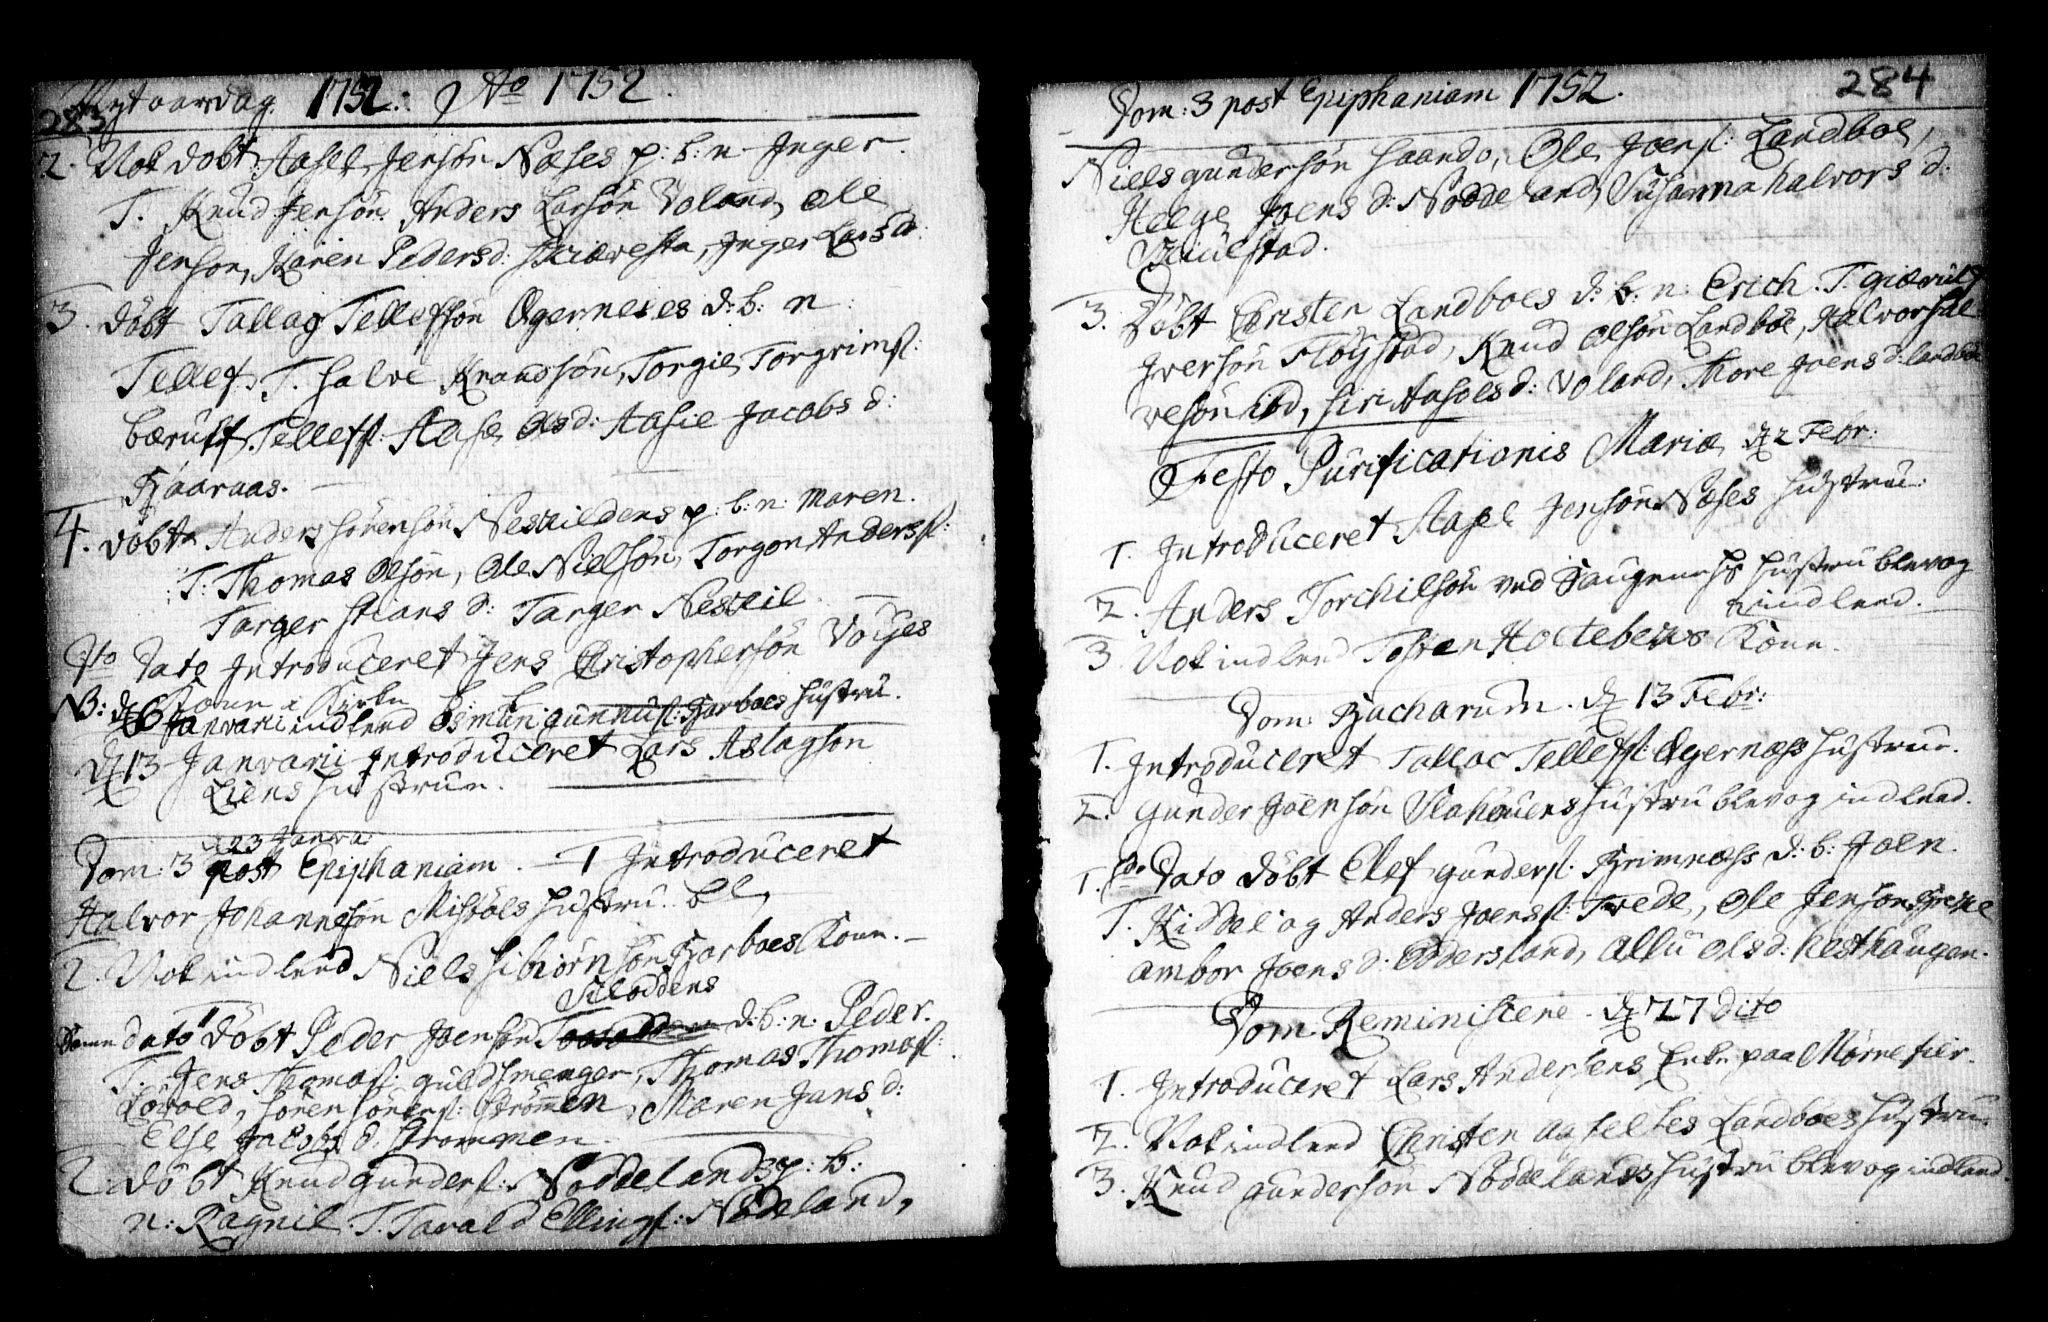 283
Nyt aarsdag 1752. Ao 1752.
2. Nok döbt Aasel Jensön Næses p: b: n. Inger.
T. Knud Jensön, Anders Larsön Voland, Ole
Jenson, Karen Peders d: Skiæresta, Inger Lars d:
3. döbt Tallag Tellefsön Ogernes es d: b: n:
Tellef. T. Halve Knudsön, Torgie Torgrimss:
Bærulf Tellefss: Aase Ols d: Aasie Jacobs d:
Kaaraas.
4. döbt Anders Sörensön Neskildens p: b: n: Maren.
T: Thomas Olsön, Ole Nielsön, Torgon Anderss:
Targer Stians d: Targer Neskil
Dto Dato Introduceret Jens Christophersön Voxes
Kone i Kirken
NB: d. 6 Janvarii indleed Osmun Gunnuss: Garboes Hustru.
d. 13 Janvarii Introduceret Lars Aslagson
Liens Hustrue.
d 23 Janva:
Dom: 3 post Epiphaniam. 1 Introduceret
Halvor Johannesön Misböls Hustru. Bl,
2. Nok indleed Niels Sibiörnsön Garboes Kone.
Kiloddens
Samme dato 1 Döbt Peder Joensön d: b: n: Peder.
T. Jens Thomass: Guldsmenger, Thomas Thomass:
Lövold, Sören Sörenss: Strömmen, Maren Jans d:
Else Jacobs d. Strommen.
2. döbt Knud Gunderss: Noddelands p: b:
n: Ragnil. T. Tarald Ellingss: Nodeland,
284
Dom: 3 post Epiphaniam 1752.
Niels Gundersön Saando, Ole Joenss: Landboe,
Helge Joens d: Noddeland, Susanna Halvors d:
Vrielstad.
3. Döbt Christen Landboes d: b: n: Erich. T. Giæruls
Iversön Flöystad, Knud Olsön Landböe, Halvor Hal-
vesön ibd, Siri Aasols d: Voland, Thore Joens d: Landboe
Festo Purificationis Mariæ d. 2 Febr:
1. Introduceret Aasel Jensön Næses Hustru.
2. Anders Torchilsön ved Haugenes Hustru blev og
indleed.
3. Nok indleed Tosten Holtebers Kone.
Dom: Zacharum. d. 13 Febr:
1. Introduceret Tallac Tellefss: Ogernæss Hustrue.
2. Gunder Joensön Vlaheuens Hustru blev og indleed.
1. Do Dato Döbt Elef Gunderss: Grimnæss d: b: Joen.
T. Kiddel og Anders Joenss: Tvede, Ole Jenson
Ambor Joens d: Eddersland, Allu Ols d: Hesthaugen.
Dom. Reminiscene. d. 27 Dito
1. Introduceret Lars Andersens Enke paa Mörnefier.
2. Nok indleed Christen Landboes Hustru.
3. Knud Gundersön Nodelands Hustru blev og indleed.